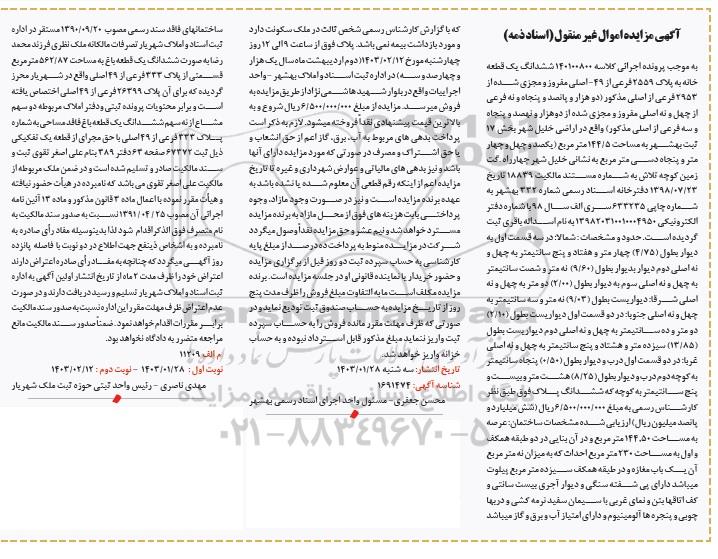 آگهی مزایده اموال غیر منقول (اسناد ذمه)
به موجب پرونده اجرائی کلاسه ۱۴۰۱۰۰۸۰۰ ششدانگ یک قطعه
خانه به پلاک ۲۵۵۹ فرعی از ۴۹- اصلی مفروز و مجزی شده از
۲۹۵۳ فرعی از اصلی مذکور (دو هزار و پانصد و پنجاه و نه فرعی
از چهل و نه اصلی مفروز و مجزی شده از دوهزار و نهصد و پنجاه
و سه فرعی از اصلی مذکور) واقع در اراضی خلیل شهر بخش ۱۷
ثبت بهشهر به مساحت ۱۴۴/۵ متر مربع (یکصد و چهل و چهار
متر و پنجاه دسی متر مربع به نشانی خلیل شهر چهارراه گت
زمین کوچه تلاش به شماره مستند مالکیت ۱۸۸۳۹ تاریخ
۱۳۹۸/۰۷/۲۳ دفترخانه اسناد رسمی شماره ۳۲۲ بهشهر به
شماره چاپی ۶۳۳۲۳۵ سری الف سال ۹۸ با شماره دفتر
الکترونیکی ۱۳۹۸۲۰۳۱۰۰۱۰۰۰۴۹۵۰ به نام اسداله باقری ثبت
گردیده است. حدود و مشخصات: شمالا: در سه قسمت اول به
دیوار بطول (۴/۷۵) چهار متر و هفتاد و پنج سانتیمتر به چهل و
نه اصلی دوم دیوار بدیوار بطول (۹/۶۰) نه متر و شصت سانتیمتر
به چهل و نه اصلی سوم به دیوار بطول (۲/۰۰) دو متر به چهل و نه
اصلی شرقا: دیواریست بطول (۹/۰۳) نه متر و سه سانتیمتر به
چهل و نه اصلی جنوبا: در دو قسمت اول دیواریست بطول (۲/۱۰)
دو متر و ده سانتیمتر به چهل و نه اصلی دوم دیواریست بطول
(۱۳/۸۵) سیزده متر و هشتاد و پنج سانتیمتر به چهل و نه اصلی
غربا: در دو قسمت اول درب و دیوار بطول (۰/۵۰) پنجاه سانتیمتر
به کوچه دوم درب و دیوار بطول (۸/۲۵) هشت متر و بیست و
پنج سانتیمتر به کوچه که ششدانگ پلاک فوق طبق نظر
کارشناس رسمی به مبلغ ۶/۵۰۰/۰۰۰/۰۰۰ ریال (شش میلیارد و
پانصد میلیون ریال) ارزیابی شده مشخصات ساختمان: عرصه
به مساحت ۱۴۴,۵۰ متر مربع و در آن بنایی در دو طبقه همکف
و اول به مساحت ۲۳۰ متر مربع احداث که به میزان نه متر مربع
آن یک باب مغازه و در طبقه همکف سیزده متر مربع پیلوت
میباشد دارای پی شفته سنگی و دیوار آجری بیست سانتی و
کف اتاقها بتن و نمای غربی با سیمان سفید نرمه کشی و دربها
چوبی و پنجره ها آلومینیوم و دارای امتیاز آب و برق و گاز میباشد
که با گزارش کارشناس رسمی شخص ثالث در ملک سکونت دارد
و مورد بازداشت بیمه نمی باشد. پلاک فوق از ساعت ۹ الی ۱۲ روز
چهارشنبه مورخ ۱۴۰۳/۰۲/۱۲ (دوم اردیبهشت ماه سال یک هزار
و چهارصد و سه) در اداره ثبت اسناد و املاک بهشهر - واحد
اجرا واقع در بلوار شهید هاشمی نژاد از طریق مزایده به
فروش میرسد. مزایده از مبلغ ۶/۵۰۰/۰۰۰/۰۰۰ ریال شروع و به
بالاترین قیمت پیشنهادی نقدا فروخته میشود. لازم به ذکر است
پرداخت بدهی های مربوط به آب، برق، گاز اعم از حق انشعاب و
یا حق اشتراک و مصرف در صورتی که مورد مزایده دارای آنها
باشد و نیز بدهی های مالیاتی و عوارض شهرداری و غیره تا تاریخ
مزایده اعم از اینکه رقم قطعی آن معلوم شده یا نشده باشد به
عهده برنده مزایده است و نیز در صورت وجود مازاد، وجوه
پرداختی بابت هزینه های فوق از محل مازاد به برنده مزایده
مسترد خواهد شد و نیم عشر و حق مزایده نقدا وصول میگردد
شرکت در مزایده منوط به پرداخت ده درصد از مبلغ پایه
کارشناسی به حساب سپرده ثبت دو روز قبل از برگزاری مزایده
و حضور خریدار یا نماینده قانونی او در جلسه مزایده است. برنده
مزایده مکلف است ما به التفاوت مبلغ فروش را ظرف مدت پنج
روز از تاریخ مزایده به حساب صندوق ثبت تودیع نماید و در
صورتی که ظرف مهلت مقرر مانده فروش را به حساب سپرده
ثبت واریز ننماید مبلغ مذکور قابل استرداد نبوده و به حساب
خزانه واریز خواهد شد.
تاریخ انتشار: سه شنبه ۱۴۰۳/۰۱/۲۸
شناسه آگهی: ۱۶۹۱۴۷۴
محسن جعفری- مسئول واحد اجرای اسناد رسمی بهشهر
ساختمانهای فاقد سند رسمی مصوب ۱۳۹۰/۰۹/۲۰ مستقر در اداره
ثبت اسناد و املاک شهریار تصرفات مالکانه ملک نظری فرزند محمد
رضا به صورت ششدانگ یک قطعه باغ به مساحت ۵۶۲/۸۷ متر مربع
قسمتی از پلاک ۳۳۳ فرعی از ۴۹ اصلی واقع در شهریار محرز
گردیده که برای آن پلاک ۲۶۳۹۹ فرعی از ۴۹ اصلی اختصاص یافته
است و برابر محتویات پرونده ثبتی و دفتر املاک مربوطه دو سهم
مشاع از نه سهم ششدانگ یک قطعه باغ فاقد مساحی به شماره
پلاک ۳۳۳ فرعی از ۴۹ اصلی با حق مجرای از قطعه یک تفکیکی
ذیل ثبت ۶۷۳۷۲ صفحه ۶۳ دفتر ۳۸۹ بنام علی اصغر تقوی ثبت و
سند مالکیت صادر و تسلیم شده است و در ضمن ملک مربوطه از
مالکیت علی اصغر تقوی می باشد که نامبرده در هیأت حضور نیافته
و هیأت مقرر نموده با اعمال ماده ۳ قانون مذکور و ماده ۱۳ آئین نامه
اجرائی آن مصوب ۱۳۹۱/۰۴/۲۵ نسبت به صدور سند مالکیت به
نام متصرف فوق الذکر اقدام شود لذا بدینوسیله مفاد رأی صادره به
نامبرده و به اشخاص ذینفع جهت اطلاع در دو نوبت با فاصله پانزده
روز آگهی میگردد که چنانچه به مفاد رأی صادره اعتراض دارند
اعتراض خود را ظرف مدت ۲ ماه از تاریخ انتشار اولین آگهی به اداره
ثبت اسناد و املاک شهریار تسلیم و رسید دریافت دارند و در صورت
عدم اعتراض ظرف مهلت مقرر این اداره نسبت به صدور سند مالکیت
برابر مقررات اقدام خواهد نمود. ضمنا صدور سند مالکیت مانع
مراجعه متضرر به دادگاه نخواهد بود.
م الف ۱۱۲۰۹
نوبت اول: ۱۴۰۳/۰۱/۲۸ - نوبت دوم: ۱۴۰۳/۰۲/۱۲
مهدی ناصری - رئیس واحد ثبتی حوزه ثبت ملک شهریار
۰۲۱-۸۸۳۴۹۶۷۰-۵